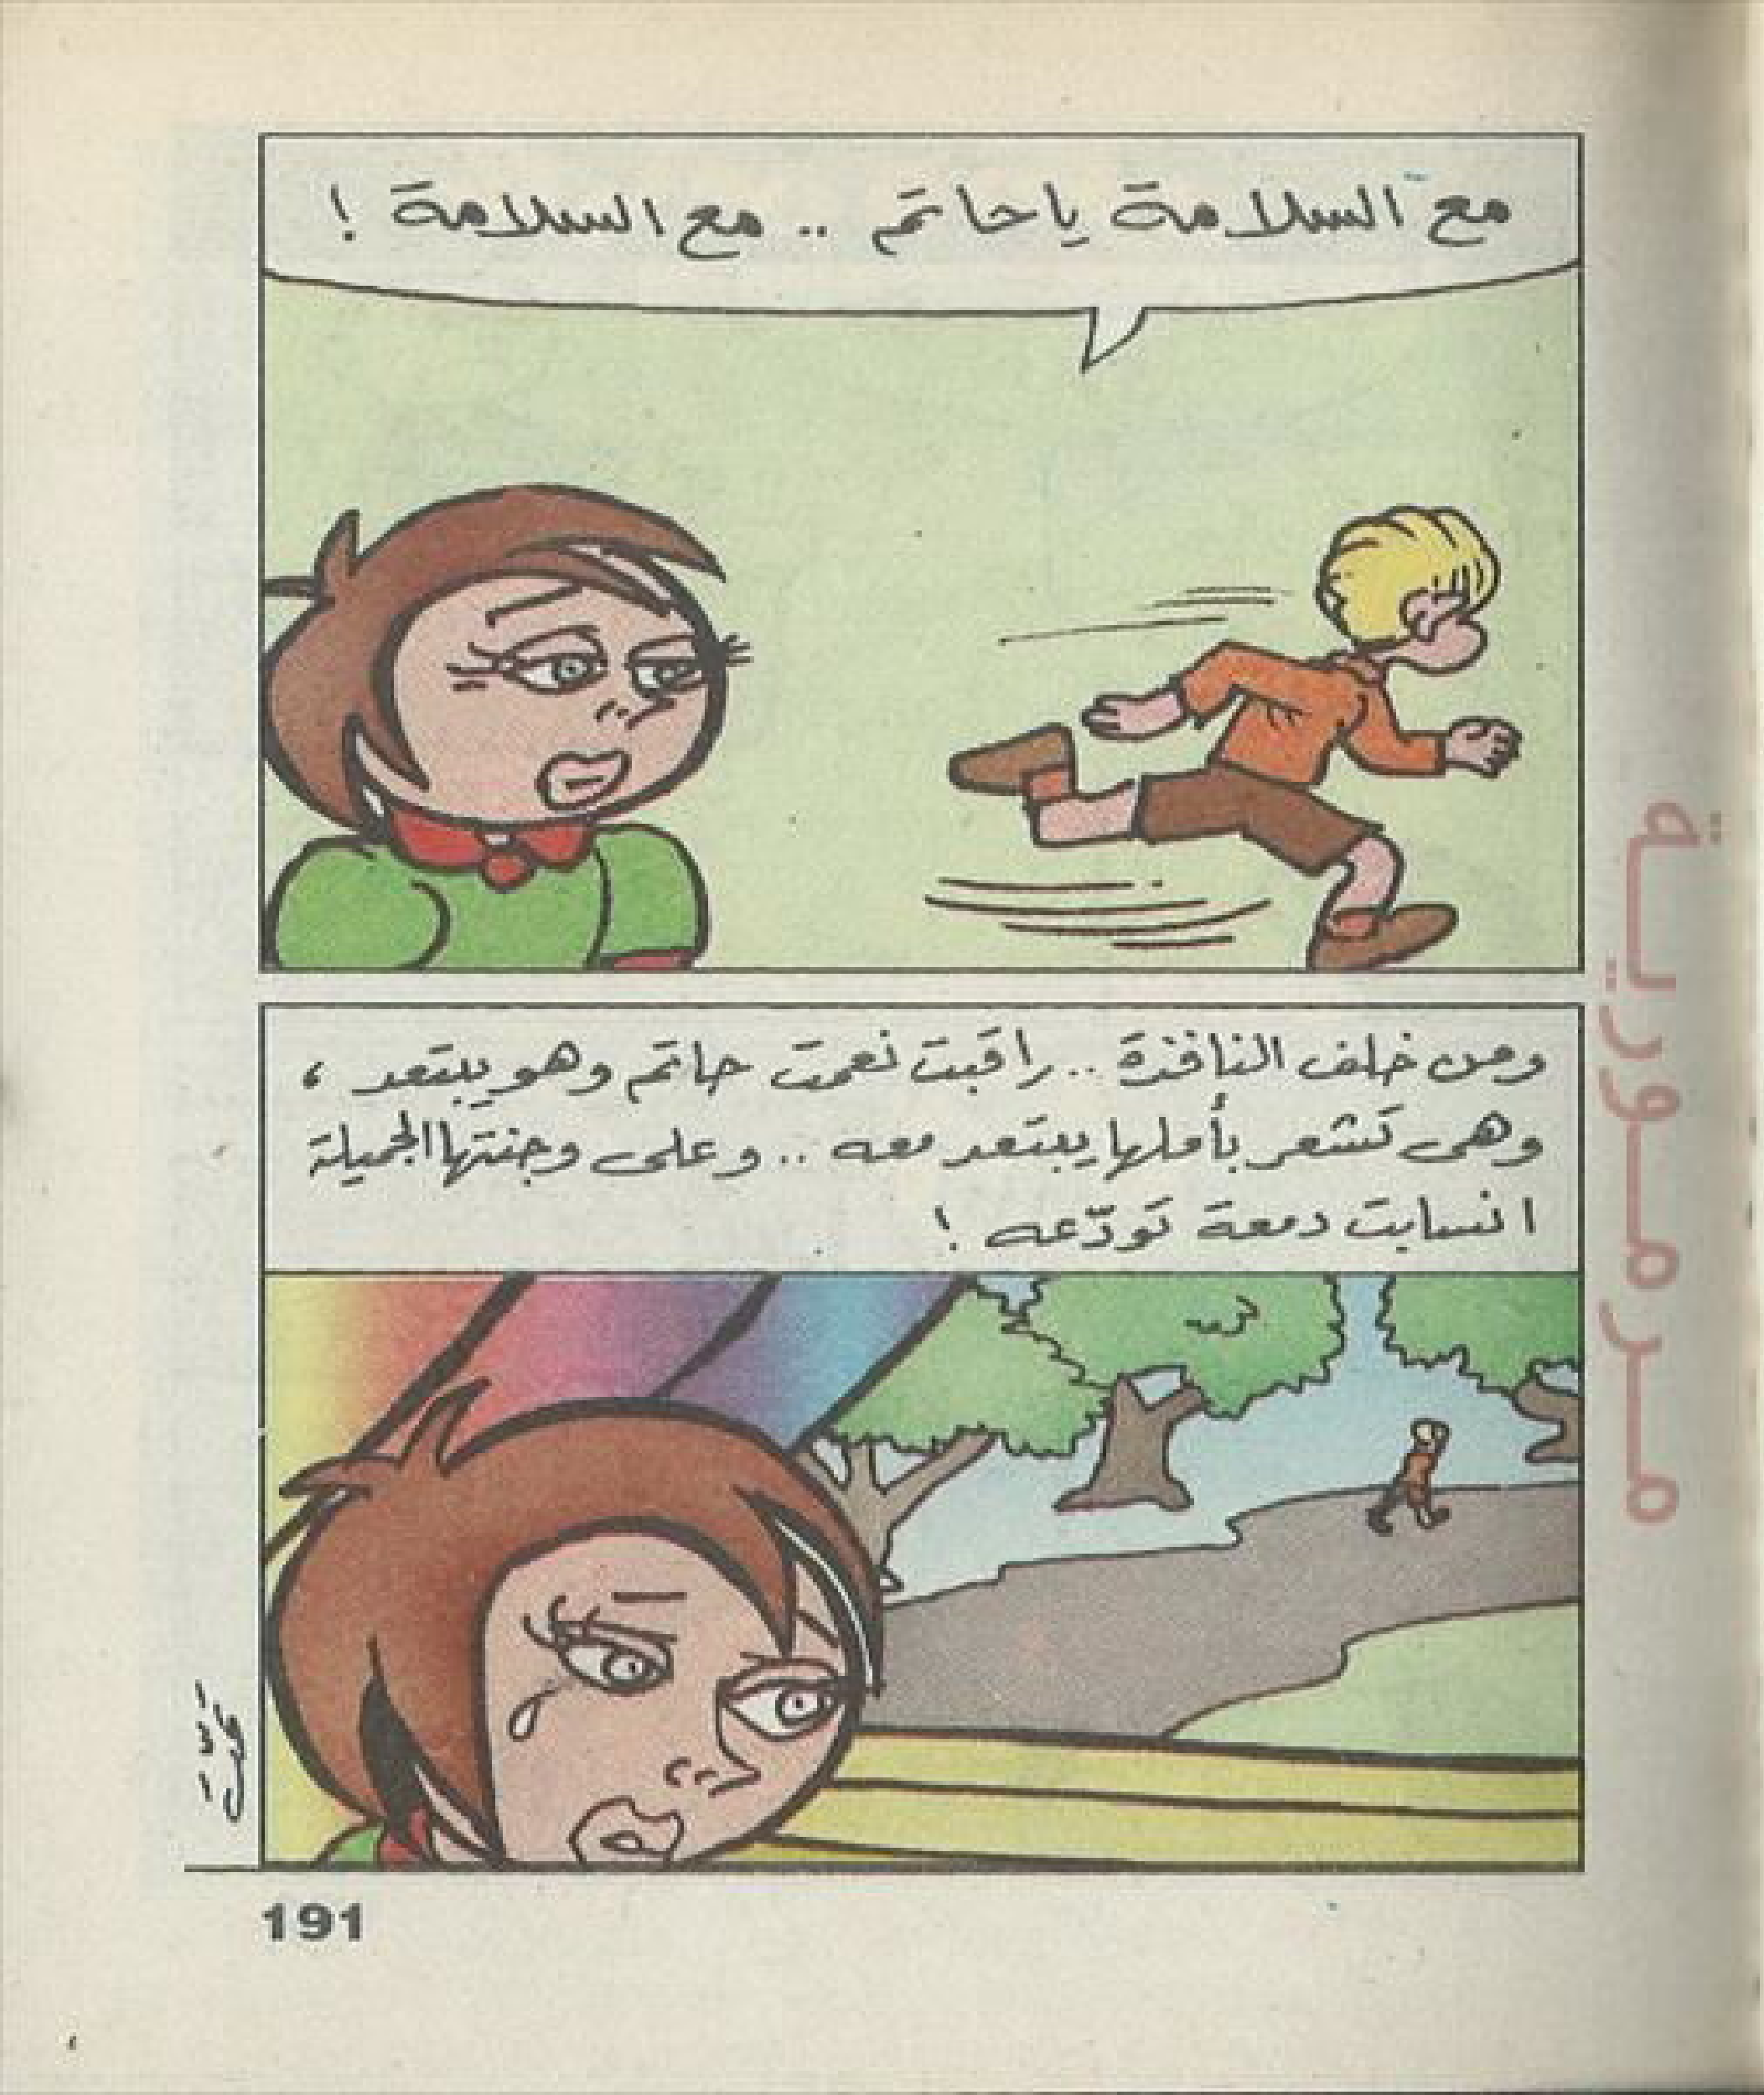 مع السلامة ياحاتم .. مع السلامة !
ومن خلف النافذة .. راقبت نعمت حاتم وهو يبتعد ،
وهى تشعر بأملها يبتعد معه .. وعلى وجنتها الجميلة
انسابت دمعة تودّعه !
191
مرمورية